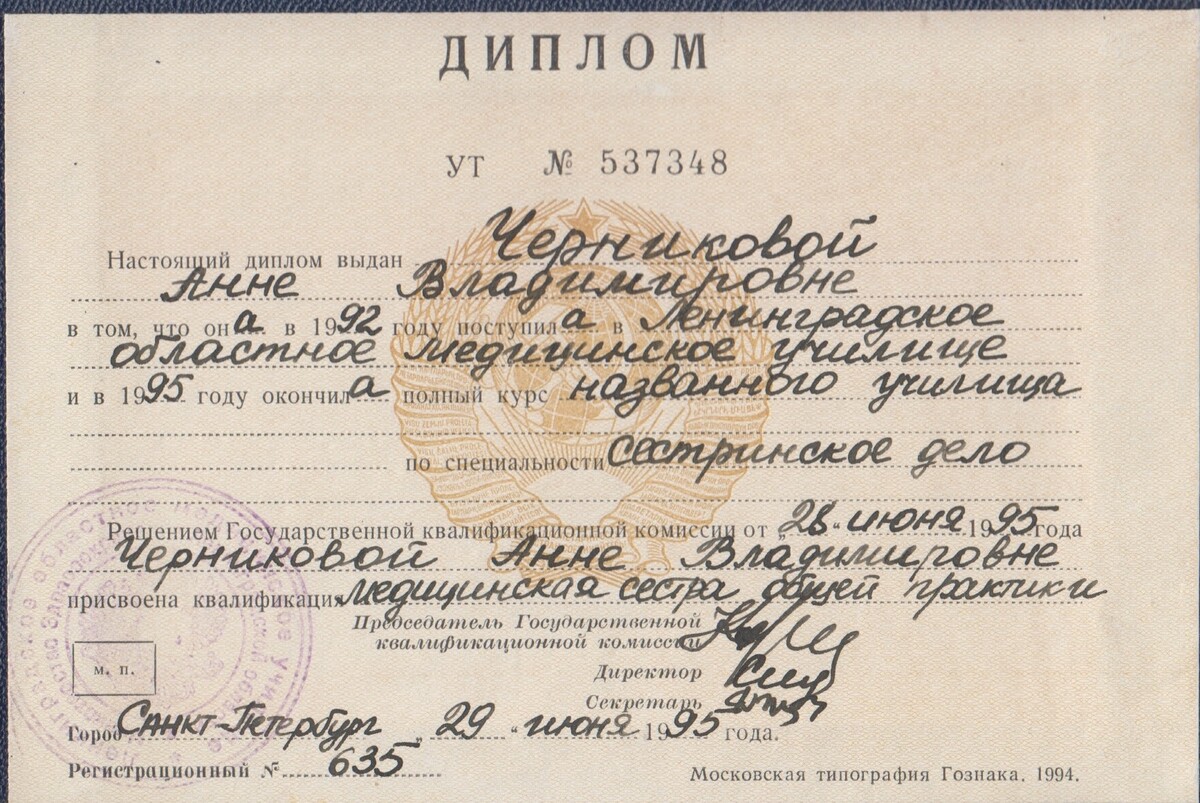 ДИПЛОМ
УТ № 537348
Настоящий диплом выдан Черниковой
Анне Владимировне
в том, что она в 1992 году поступила в Ленинградское
областное медицинское училище
и в 1995 году окончила полный курс названного училища
по специальности сестринское дело
Решением Государственной квалификационной комиссии от „28“ июня 1995 года
Черниковой Анне Владимировне
присвоена квалификация медицинская сестра общей практики
Председатель Государственной
квалификационной комиссии
Директор
Секретарь
м. п.
Город Санкт-Петербург „29“ июня 1995 года.
Регистрационный № 635
Московская типография Гознака. 1994.